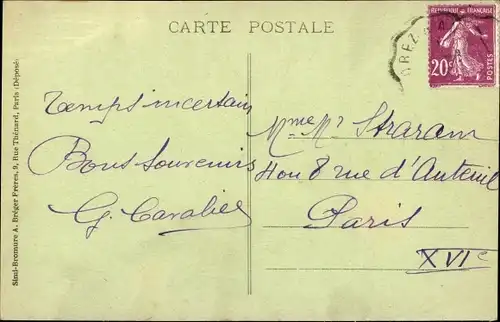 CARTE POSTALE
REPUBLIQUE FRANÇAISE
20c
POSTES
Temps incertain
Bons Souvenirs
G. Cavalier
Mme Mr Straram
8 rue d'Auteuil
Paris
XVIe
Sinal-Bromure A. Bréger Frères, 9, Rue Thénard, Paris (Déposé)